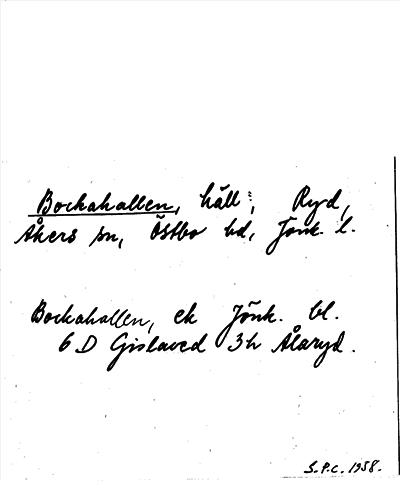 Bockahallen, häll, Ryd,
Åkers sn, Östbo hd, Jönk. l.
Bockahallen, ek Jönk. bl.
6 D Gislaved 3h Ålaryd.
S.P.C. 1958.